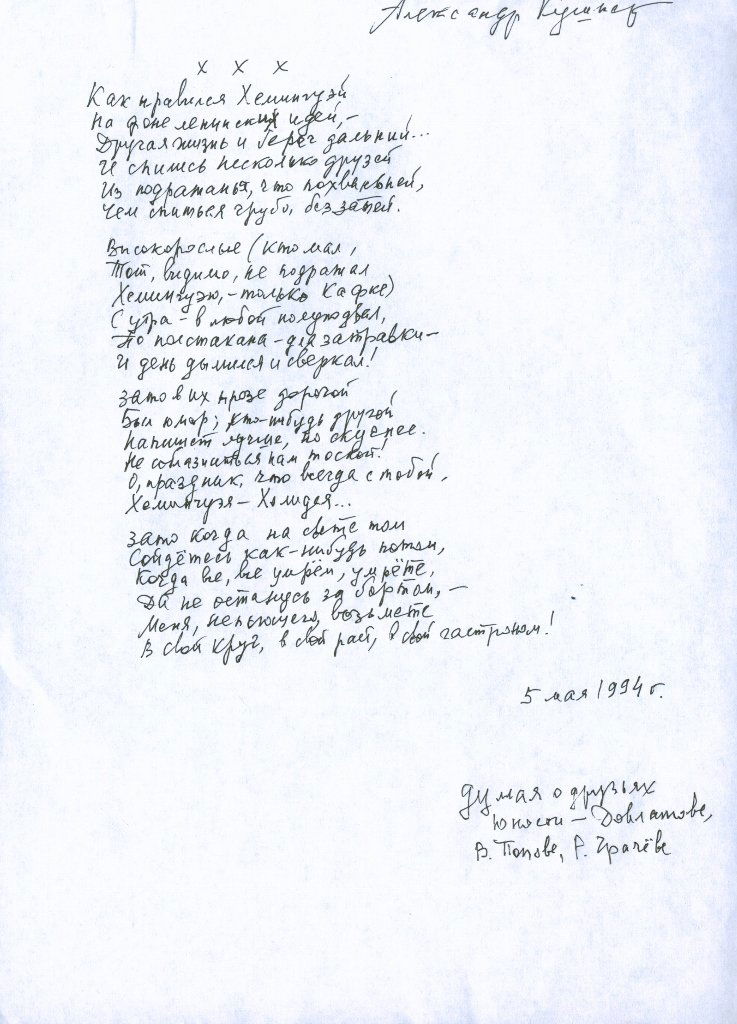 Александр Кушнер
х х х
Как нравился Хемингуэй
На фоне ленинских идей,–
Другая жизнь и берег дальний...
И спились несколько друзей
Из подражанья, что похвальней,
Чем спиться грубо, без затей.
Высокорослые (кто мал,
Тот, видимо, не подражал
Хемингуэю,– только Кафке)
С утра – в любой полуподвал,
По полстакана – для затравки –
И день дымился и сверкал!
Зато в их прозе дорогой
Был юмор; кто-нибудь другой
Напишет лучше, но скучнее.
Не соблазниться нам тоской!
О, праздник, что всегда с тобой,
Хемингуэя – Холидея...
Зато когда на свете том
Сойдётесь как-нибудь потом,
Когда все, все умрём, умрёте,
Да не останусь за бортом,–
Меня, непьющего, возьмёте
В свой круг, в свой рай, в свой гастроном!
5 мая 1994 г.
думая о друзьях
юности – Довлатове,
В. Попове, Р. Грачёве